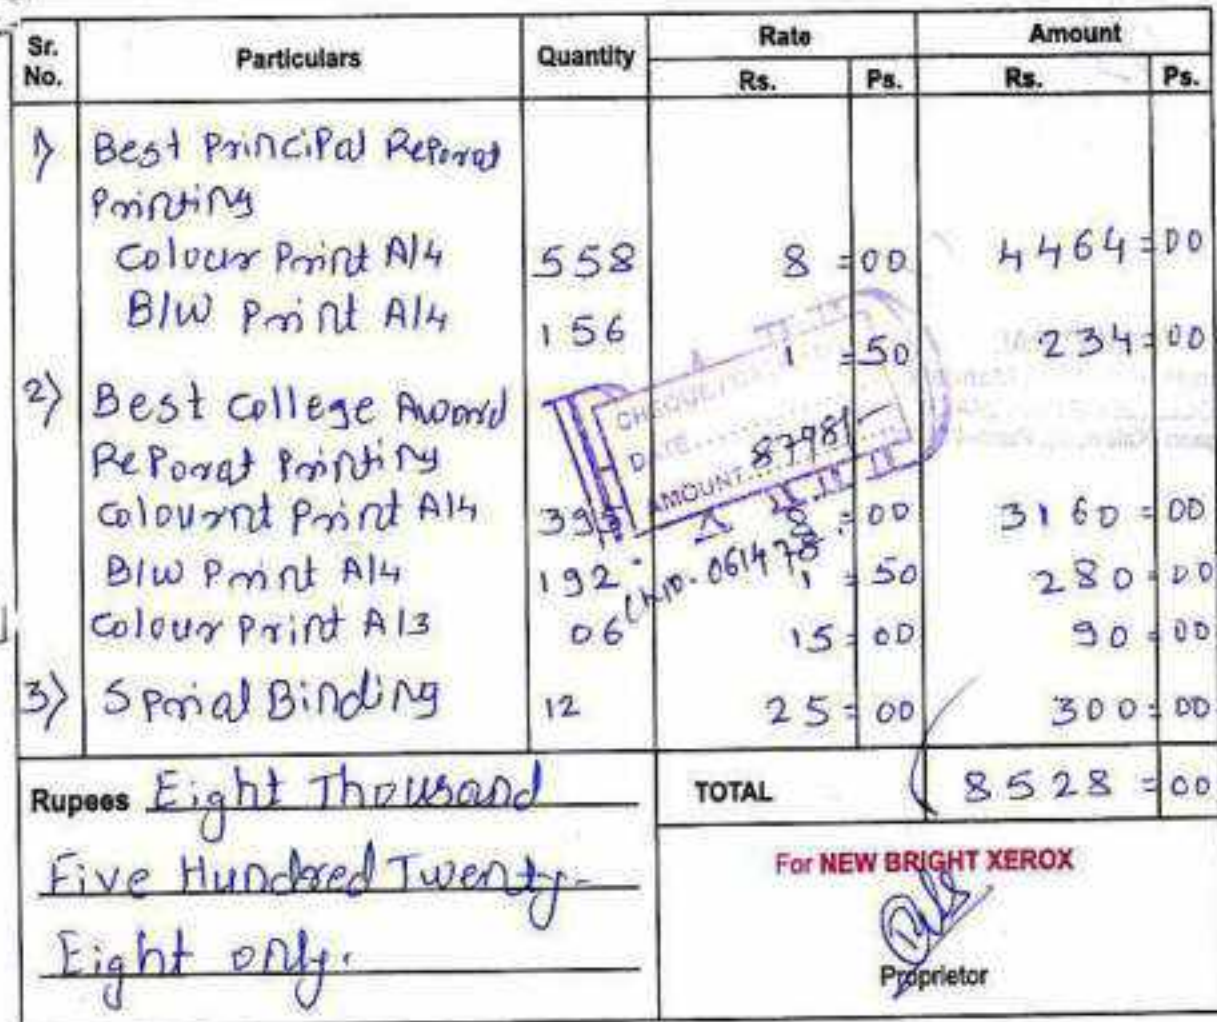 Sr. No. Particulars Quantity Rate Amount
Rs. Ps. Rs. Ps.
1) Best Principal Reporat
Printing
Colour Print A/4 558 8 =00 4464=00
B/W Print A/4 156 1 =50 234=00
2) Best College Award
Reporat Printing
Colournt Print A/4 395 8 =00 3160=00
B/W Print A/4 192 1 =50 280=00
Colour Print A/3 06 15=00 90=00
3) Sperial Binding 12 25=00 300=00
CHEQUE
DATE
AMOUNT 87981/-
061478
Rupees Eight Thousand TOTAL 8528=00
Five Hundred Twenty-
Eight only.
For NEW BRIGHT XEROX
Proprietor